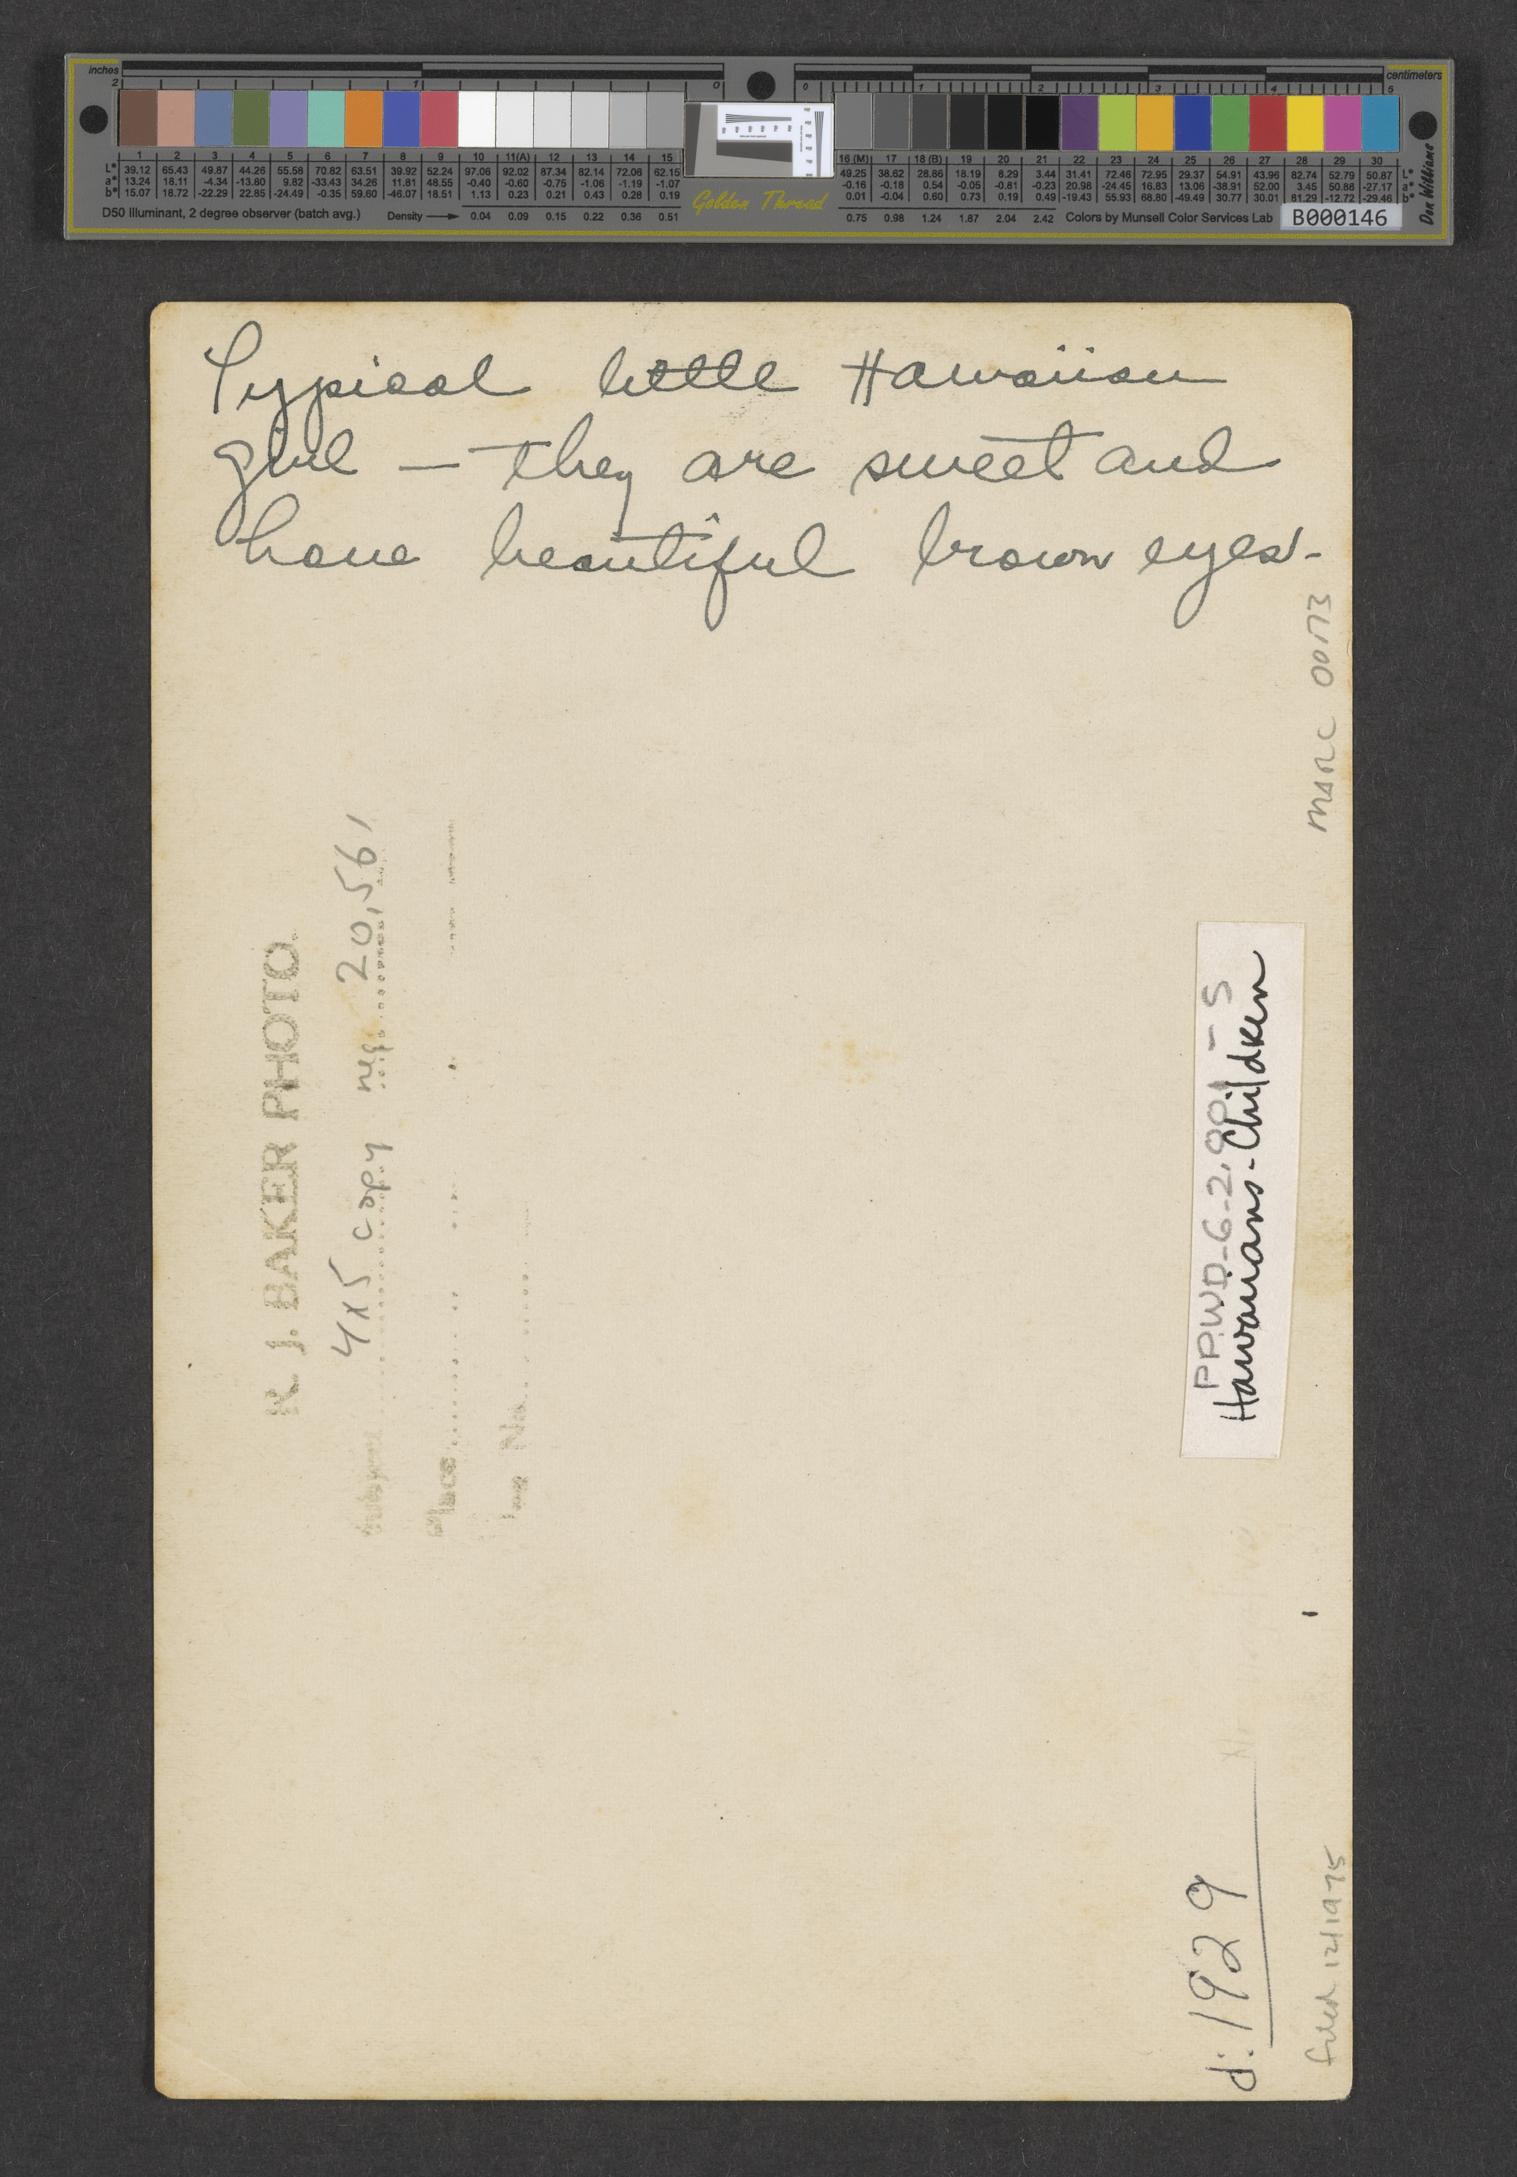 inches
centimeters
2 1 0 0 1 2 3 4 5
1 2 3 4 5 6 7 8 9 10 11(A) 12 13 14 15 16 (M) 17 18 (B) 19 20 21 22 23 24 25 26 27 28 29 30
L* 39.12 65.43 49.87 44.26 55.58 70.82 63.51 39.92 52.24 97.06 92.02 87.34 82.14 72.06 62.15 49.25 38.62 28.86 18.19 8.29 3.44 31.41 72.46 72.95 29.37 54.91 43.96 82.74 52.79 50.87 L*
a* 13.24 18.11 -4.34 -13.80 9.82 -33.43 34.26 11.81 48.55 -0.40 -0.60 -0.75 -1.06 -1.19 -1.07 -0.16 -0.18 0.54 -0.05 -0.81 -0.23 20.98 -24.45 16.83 13.06 -38.91 52.00 3.45 50.88 -27.17 a*
b* 15.07 18.72 -22.29 22.85 -24.49 -0.35 59.60 -46.07 18.51 1.13 0.23 0.21 0.43 0.28 0.19 0.01 -0.04 0.60 0.73 0.19 0.49 -19.43 55.93 68.80 -49.49 30.77 30.01 81.29 -12.72 -29.46 b*
D50 Illuminant, 2 degree observer (batch avg.) Density 0.04 0.09 0.15 0.22 0.36 0.51 Golden Thread 0.75 0.98 1.24 1.87 2.04 2.42 Colors by Munsell Color Services Lab B000146
Don Williams
Typical little Hawaiian
girl — they are sweet and
have beautiful brown eyes-
MARC 0073
R. J. BAKER PHOTO.
4x5 copy neg. 20,561
Place
Neg No.
PPWD-6-2.001-5
Hawaiians-Children
d: 1929
filed 12/1975